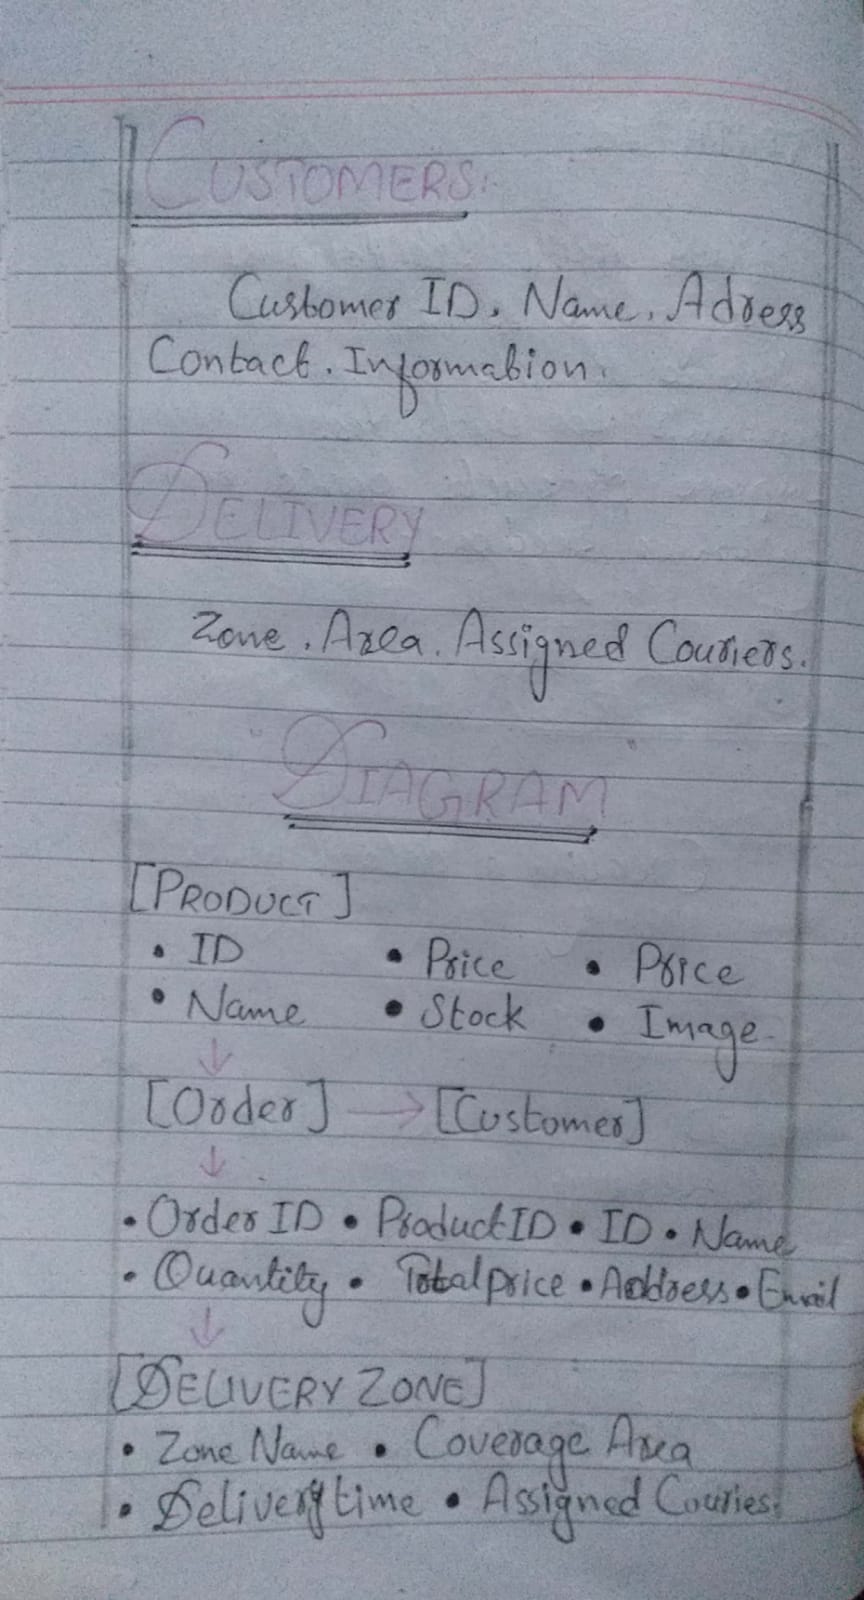 CUSTOMERS:
Customer ID, Name, Adress
Contact. Information.
DELIVERY
Zone. Area. Assigned Couriers.
"DIAGRAM"
[PRODUCT]
• ID • Price • Price
• Name • Stock • Image
↓
[Order] → [Customer]
↓
• Order ID • Product ID • ID • Name
• Quantity • Total price • Address • Email
↓
[DELIVERY ZONE]
• Zone Name • Coverage Area
• Delivery time • Assigned Couries.